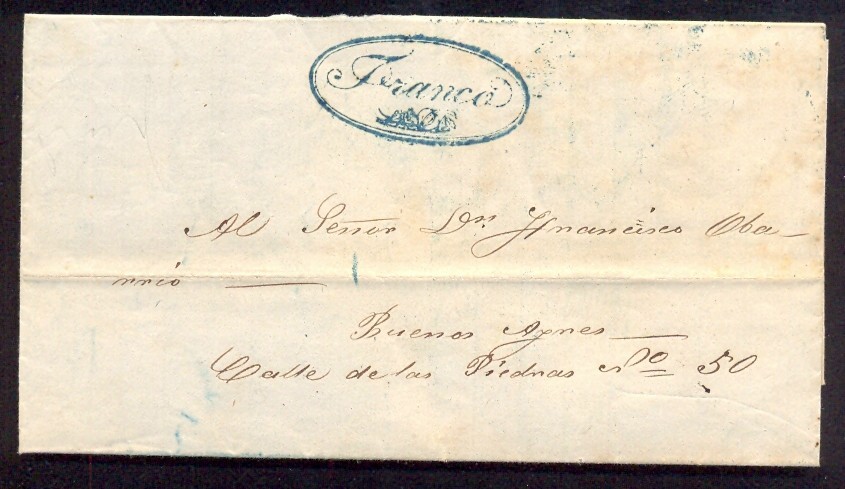 Franco
Al Señor Dn. Francisco Oba-
rrio
Buenos Ayres
Calle de las Piedras No 50